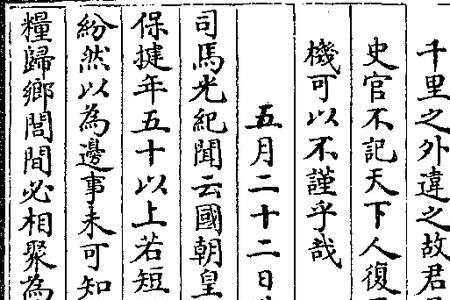 千里之外違之故君
史官不記天下人復
機可以不謹乎哉
五月二十二日
司馬光紀聞云國朝皇
保揵年五十以上若短
紛然以為邊事未可知
糧歸鄉閭間必相聚為